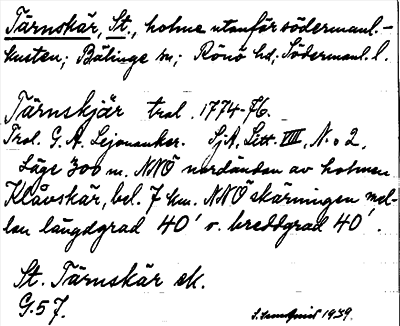 Tärnskär, St., holme utanför södermanl.-
kusten; Bälinge sn; Rönö hd; Södermanl. l.
Tärnskjär trol. 1774-76.
Trol. G. A. Lejonanker. SjA, Litt. VIII, No 2.
Läge 300 m. NNÖ nordändan av holmen
Klåvskär, bel. 7 km. NNÖ skärningen mel-
lan längdgrad 40' o. breddgrad 40'.
St. Tärnskär ek.
G. 57.
1939.